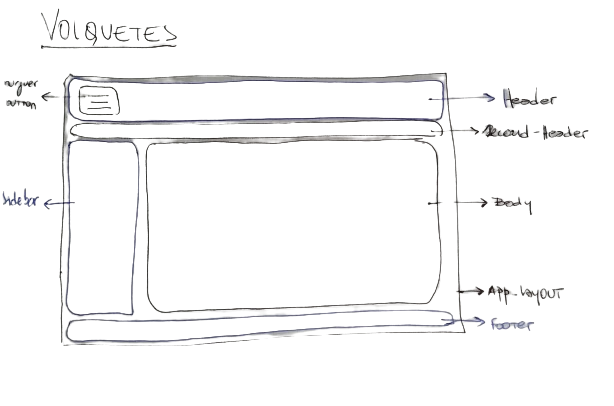 VOLQUETES
burguer
button
Header
Second-Header
sidebar
Body
App-layout
Footer